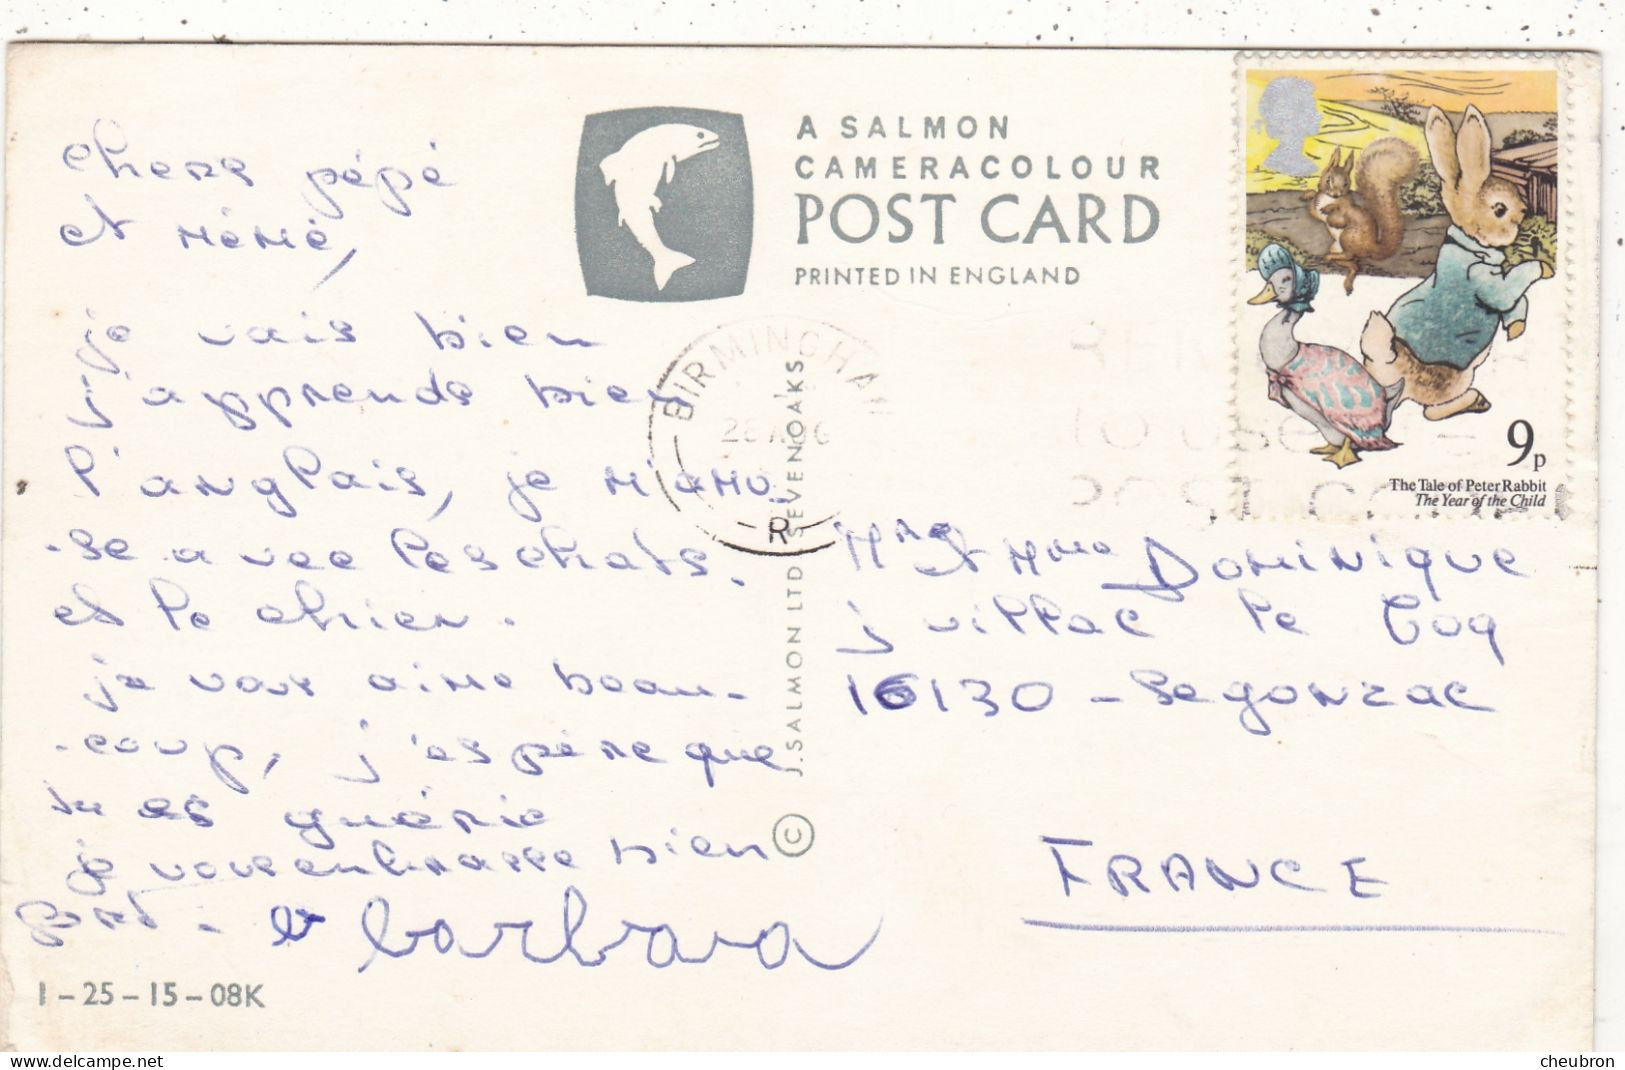 chers pépé
et mémé,
je vais bien
j'apprends bien
l'anglais, je m'amu.
.se avec les chats.
et le chien.
je vous aime beau-
.coup, j'espère que
tu es guérie
je vous embrasse bien
fort.
barbara
1-25-15-08K
A SALMON
CAMERACOLOUR
POST CARD
PRINTED IN ENGLAND
BIRMINGHAM
R
J. SALMON LTD SEVENOAKS
©
9p
The Tale of Peter Rabbit
The Year of the Child
et Mme Dominique
juillac le Coq
16130 - Segonzac
FRANCE
cheubron